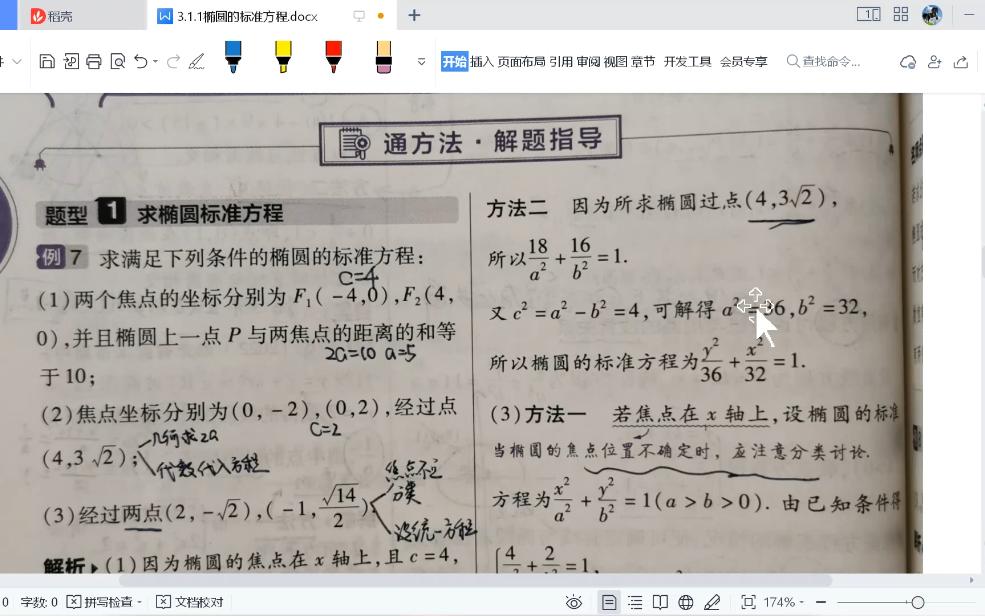 稻壳
3.1.1椭圆的标准方程.docx
开始 插入 页面布局 引用 审阅 视图 章节 开发工具 会员专享 查找命令...
通方法·解题指导
题型 1 求椭圆标准方程
例7 求满足下列条件的椭圆的标准方程：
c=4
(1)两个焦点的坐标分别为 F₁(-4,0),F₂(4,
0),并且椭圆上一点 P 与两焦点的距离的和等
2a=10 a=5
于10;
(2)焦点坐标分别为(0,-2),(0,2),经过点
c=2
(4,3√2);
几何求2a
代数代入方程
焦点不定
分类
(3)经过两点(2,-√2),(-1,√14/2);
设统一方程
解析▶(1)因为椭圆的焦点在 x 轴上,且 c=4,
方法二 因为所求椭圆过点(4,3√2),
所以18/a²+16/b²=1.
又 c²=a²-b²=4,可解得 a²=36,b²=32,
所以椭圆的标准方程为y²/36+x²/32=1.
(3)方法一 若焦点在 x 轴上,设椭圆的标准
当椭圆的焦点位置不确定时，应注意分类讨论.
方程为x²/a²+y²/b²=1(a>b>0). 由已知条件得
4/a²+2/b²=1,
字数: 0 拼写检查 文档校对 174%